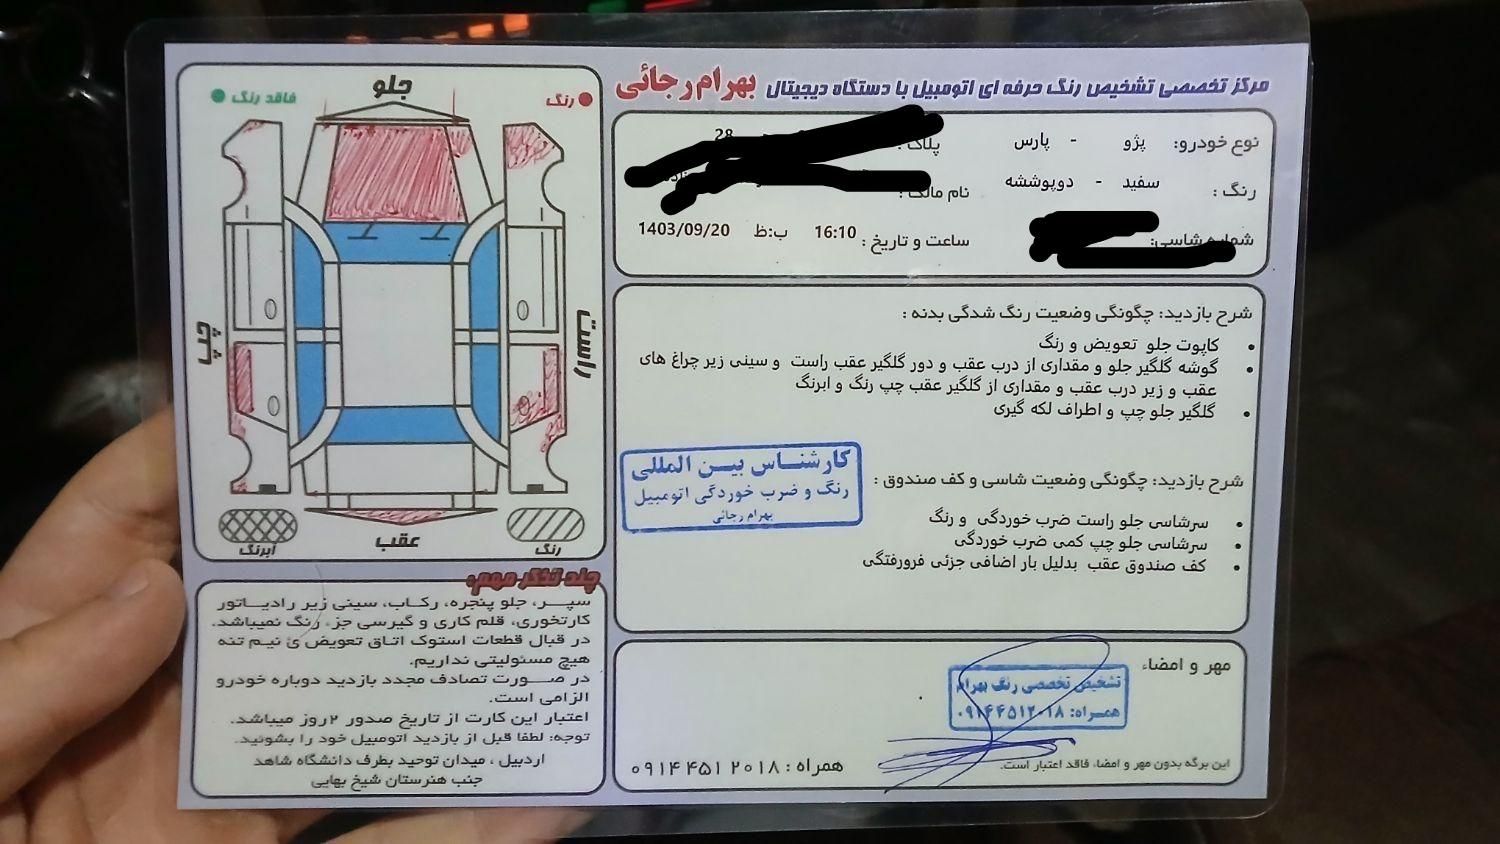 مرکز تخصصی تشخیص رنگ حرفه ای اتومبیل با دستگاه دیجیتال بهرام رجائی
نوع خودرو: پژو - پارس
پلاک : 28
رنگ : سفید - دوپوششه
نام مالک :
شماره شاسی:
ساعت و تاریخ : 16:10 ب:ظ 1403/09/20
شرح بازدید: چگونگی وضعیت رنگ شدگی بدنه :
• کاپوت جلو تعویض و رنگ
• گوشه گلگیر جلو و مقداری از درب عقب و دور گلگیر عقب راست و سینی زیر چراغ های
عقب و زیر درب عقب و مقداری از گلگیر عقب چپ رنگ و ابرنگ
• گلگیر جلو چپ و اطراف لکه گیری
شرح بازدید: چگونگی وضعیت شاسی و کف صندوق :
• سرشاسی جلو راست ضرب خوردگی و رنگ
• سرشاسی جلو چپ کمی ضرب خوردگی
• کف صندوق عقب بدلیل بار اضافی جزئی فرورفتگی
کارشناس بین المللی
رنگ و ضرب خوردگی اتومبیل
بهرام رجائی
مهر و امضاء
تشخیص تخصصی رنگ بهرام
همراه: ۰۹۱۴۴۵۱۲۰۱۸
این برگه بدون مهر و امضاء فاقد اعتبار است.
همراه : ۰۹۱۴ ۴۵۱ ۲۰۱۸
جلو
رنگ
فاقد رنگ
راست
چپ
عقب
رنگ
ابرنگ
چند تذکر مهم:
سپر، جلو پنجره، رکاب، سینی زیر رادیاتور
کارتخوری، قلم کاری و گیرسی جزء رنگ نمیباشد.
در قبال قطعات استوک اتاق تعویض ئ نیم تنه
هیچ مسئولیتی نداریم.
در صورت تصادف مجدد بازدید دوباره خودرو
الزامی است.
اعتبار این کارت از تاریخ صدور ۲ روز میباشد.
توجه: لطفا قبل از بازدید اتومبیل خود را بشوئید.
اردبیل ، میدان توحید بطرف دانشگاه شاهد
جنب هنرستان شیخ بهایی